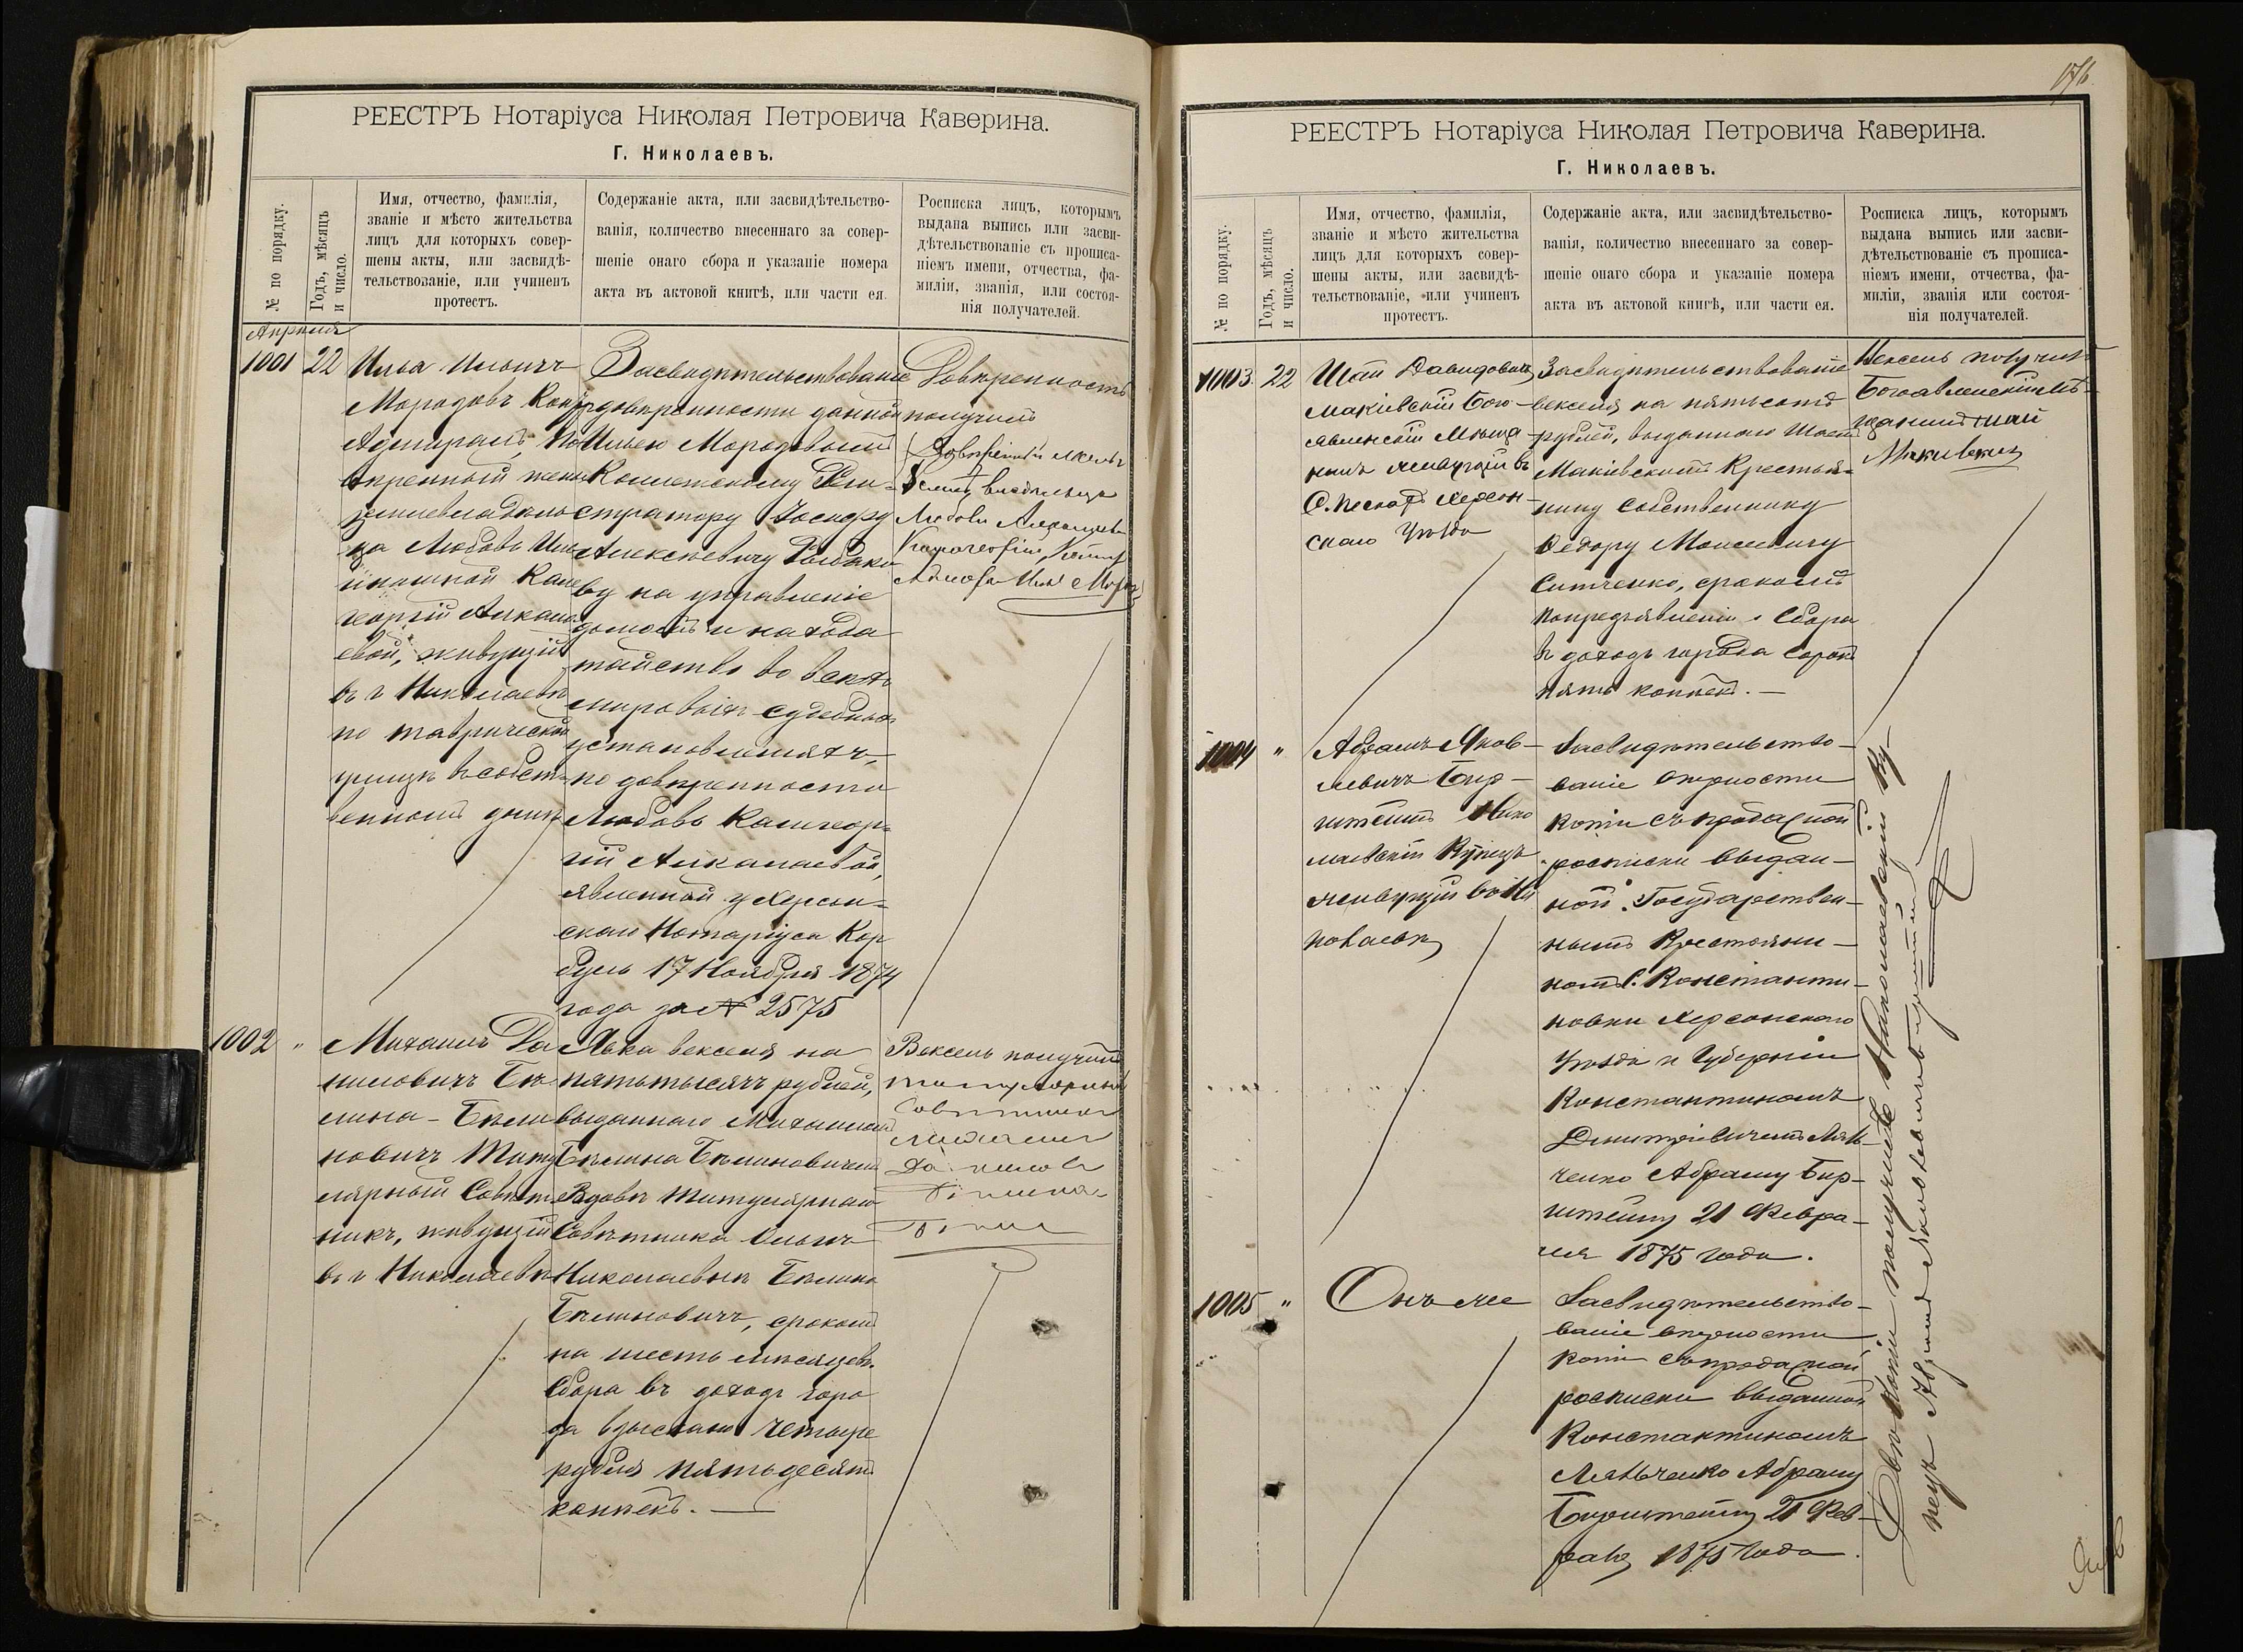 РЕЕСТРЪ Нотаріуса Николая Петровича Каверина.
Г. Николаевъ.
№ по порядку.
Годъ, мѣсяцъ
и число.
Имя, отчество, фамилія,
званіе и мѣсто жительства
лицъ для которыхъ совер-
шены акты, или засвидѣ-
тельствованіе, или учиненъ
протестъ.
Содержаніе акта, или засвидѣтельство-
ванія, количество внесеннаго за совер-
шеніе онаго сбора и указаніе номера
акта въ актовой книгѣ, или части ея.
Росписка лицъ, которымъ
выдана выпись или засви-
дѣтельствованіе съ прописа-
ніемъ имени, отчества, фа-
миліи, званія, или состоя-
нія получателей.
Апрѣля
1001
22
Илья Ильичъ
Мородовъ Контр
Адмиралъ, По
вѣренный жены
землевладѣль
ца Любовь
Кали
георгій Алкала
евой, живущій
въ г Николаевѣ
по таврической
улицѣ въ собст-
венномъ домѣ
Засвидѣтельствованіе
довѣренности данной
Ильею Мородовымъ
Коллежскому Реги-
стратору Іосифу
Алексѣевичу Рыбако
ву на управленіе
домомъ и на хода
тайство во всѣхъ
мировыхъ судебныхъ
установленіяхъ,
по довѣренности
Любовь Калигеор-
гій Алкалаевой,
явленной у Херсон-
скаго Нотаріуса Кор
буль 17 Ноября 1874
года за № 2575
Довѣренность
получилъ
Довѣренный
Любови
Илья
1002
"
Михаилъ Да
ниловичъ Бѣ
лина-Бѣли
новичъ Титу
лярный Совѣт
никъ, живущій
въ г Николаевѣ
Явка векселя на
пять тысячъ рублей,
выданнаго Михаиломъ
Бѣлина Бѣлиновичемъ
Вдовѣ Титулярнаго
Совѣтника Ольгѣ
Николаевнѣ Бѣлина
Бѣлиновичъ, срокомъ
на шесть мѣсяцевъ.
Сбора въ доходъ горо
да взыскано четыре
рубля пятьдесятъ
копѣекъ. —
Вексель получилъ
титулярный
Совѣтникъ
Михаилъ
Даниловъ
Бѣлина
176
РЕЕСТРЪ Нотаріуса Николая Петровича Каверина.
Г. Николаевъ.
№ по порядку.
Годъ, мѣсяцъ
и число.
Имя, отчество, фамилія,
званіе и мѣсто жительства
лицъ для которыхъ совер-
шены акты, или засвидѣ-
тельствованіе, или учиненъ
протестъ.
Содержаніе акта, или засвидѣтельство-
ванія, количество внесеннаго за совер-
шеніе онаго сбора и указаніе номера
акта въ актовой книгѣ, или части ея.
Росписка лицъ, которымъ
выдана выпись или засви-
дѣтельствованіе съ прописа-
ніемъ имени, отчества, фа-
миліи, званія или состоя-
нія получателей.
1003.
22
Шай Давидовичъ
Макіевскій Бого-
явленскій Мѣща-
нинъ живущій въ
Херсон-
скаго Уѣзда
Засвидѣтельствованіе
векселя на пятьсотъ
рублей, выданнаго Шаемъ
Макіевскимъ Крестья-
нину собственнику
Федору Моисеевичу
Ситченко, срокомъ
по предъявленіи. Сбора
въ доходъ города сорокъ
пять копѣекъ. —
Вексель получилъ
Богоявленскій Мѣ-
щанинъ Шай
Макиевский
1004
"
Абрамъ Яков-
левичъ Бир-
штейнъ Нико
лаевскій Купецъ
живущій въ Ни
колаевѣ
Засвидѣтельство-
ваніе вѣрности
копіи съ продажной
росписки выдан-
ной Государствен-
нымъ Крестьяни-
номъ с. Константи-
новки Херсонскаго
Уѣзда и Губерніи
Константиномъ
Дмитріевичемъ Ляль-
ченко Абраму Бир-
штейну 21 Февра-
ля 1875 года.
1005
"
Онъ же
Засвидѣтельство-
ваніе вѣрности
копіи съ продажной
росписки выданной
Константиномъ
Ляльченко Абраму
Бирштейну 21 Фев-
раля 1875 года.
Двѣ копіи получилъ Николаевскій Ку-
пецъ Абрамъ Яковлевичъ Бирштейнъ